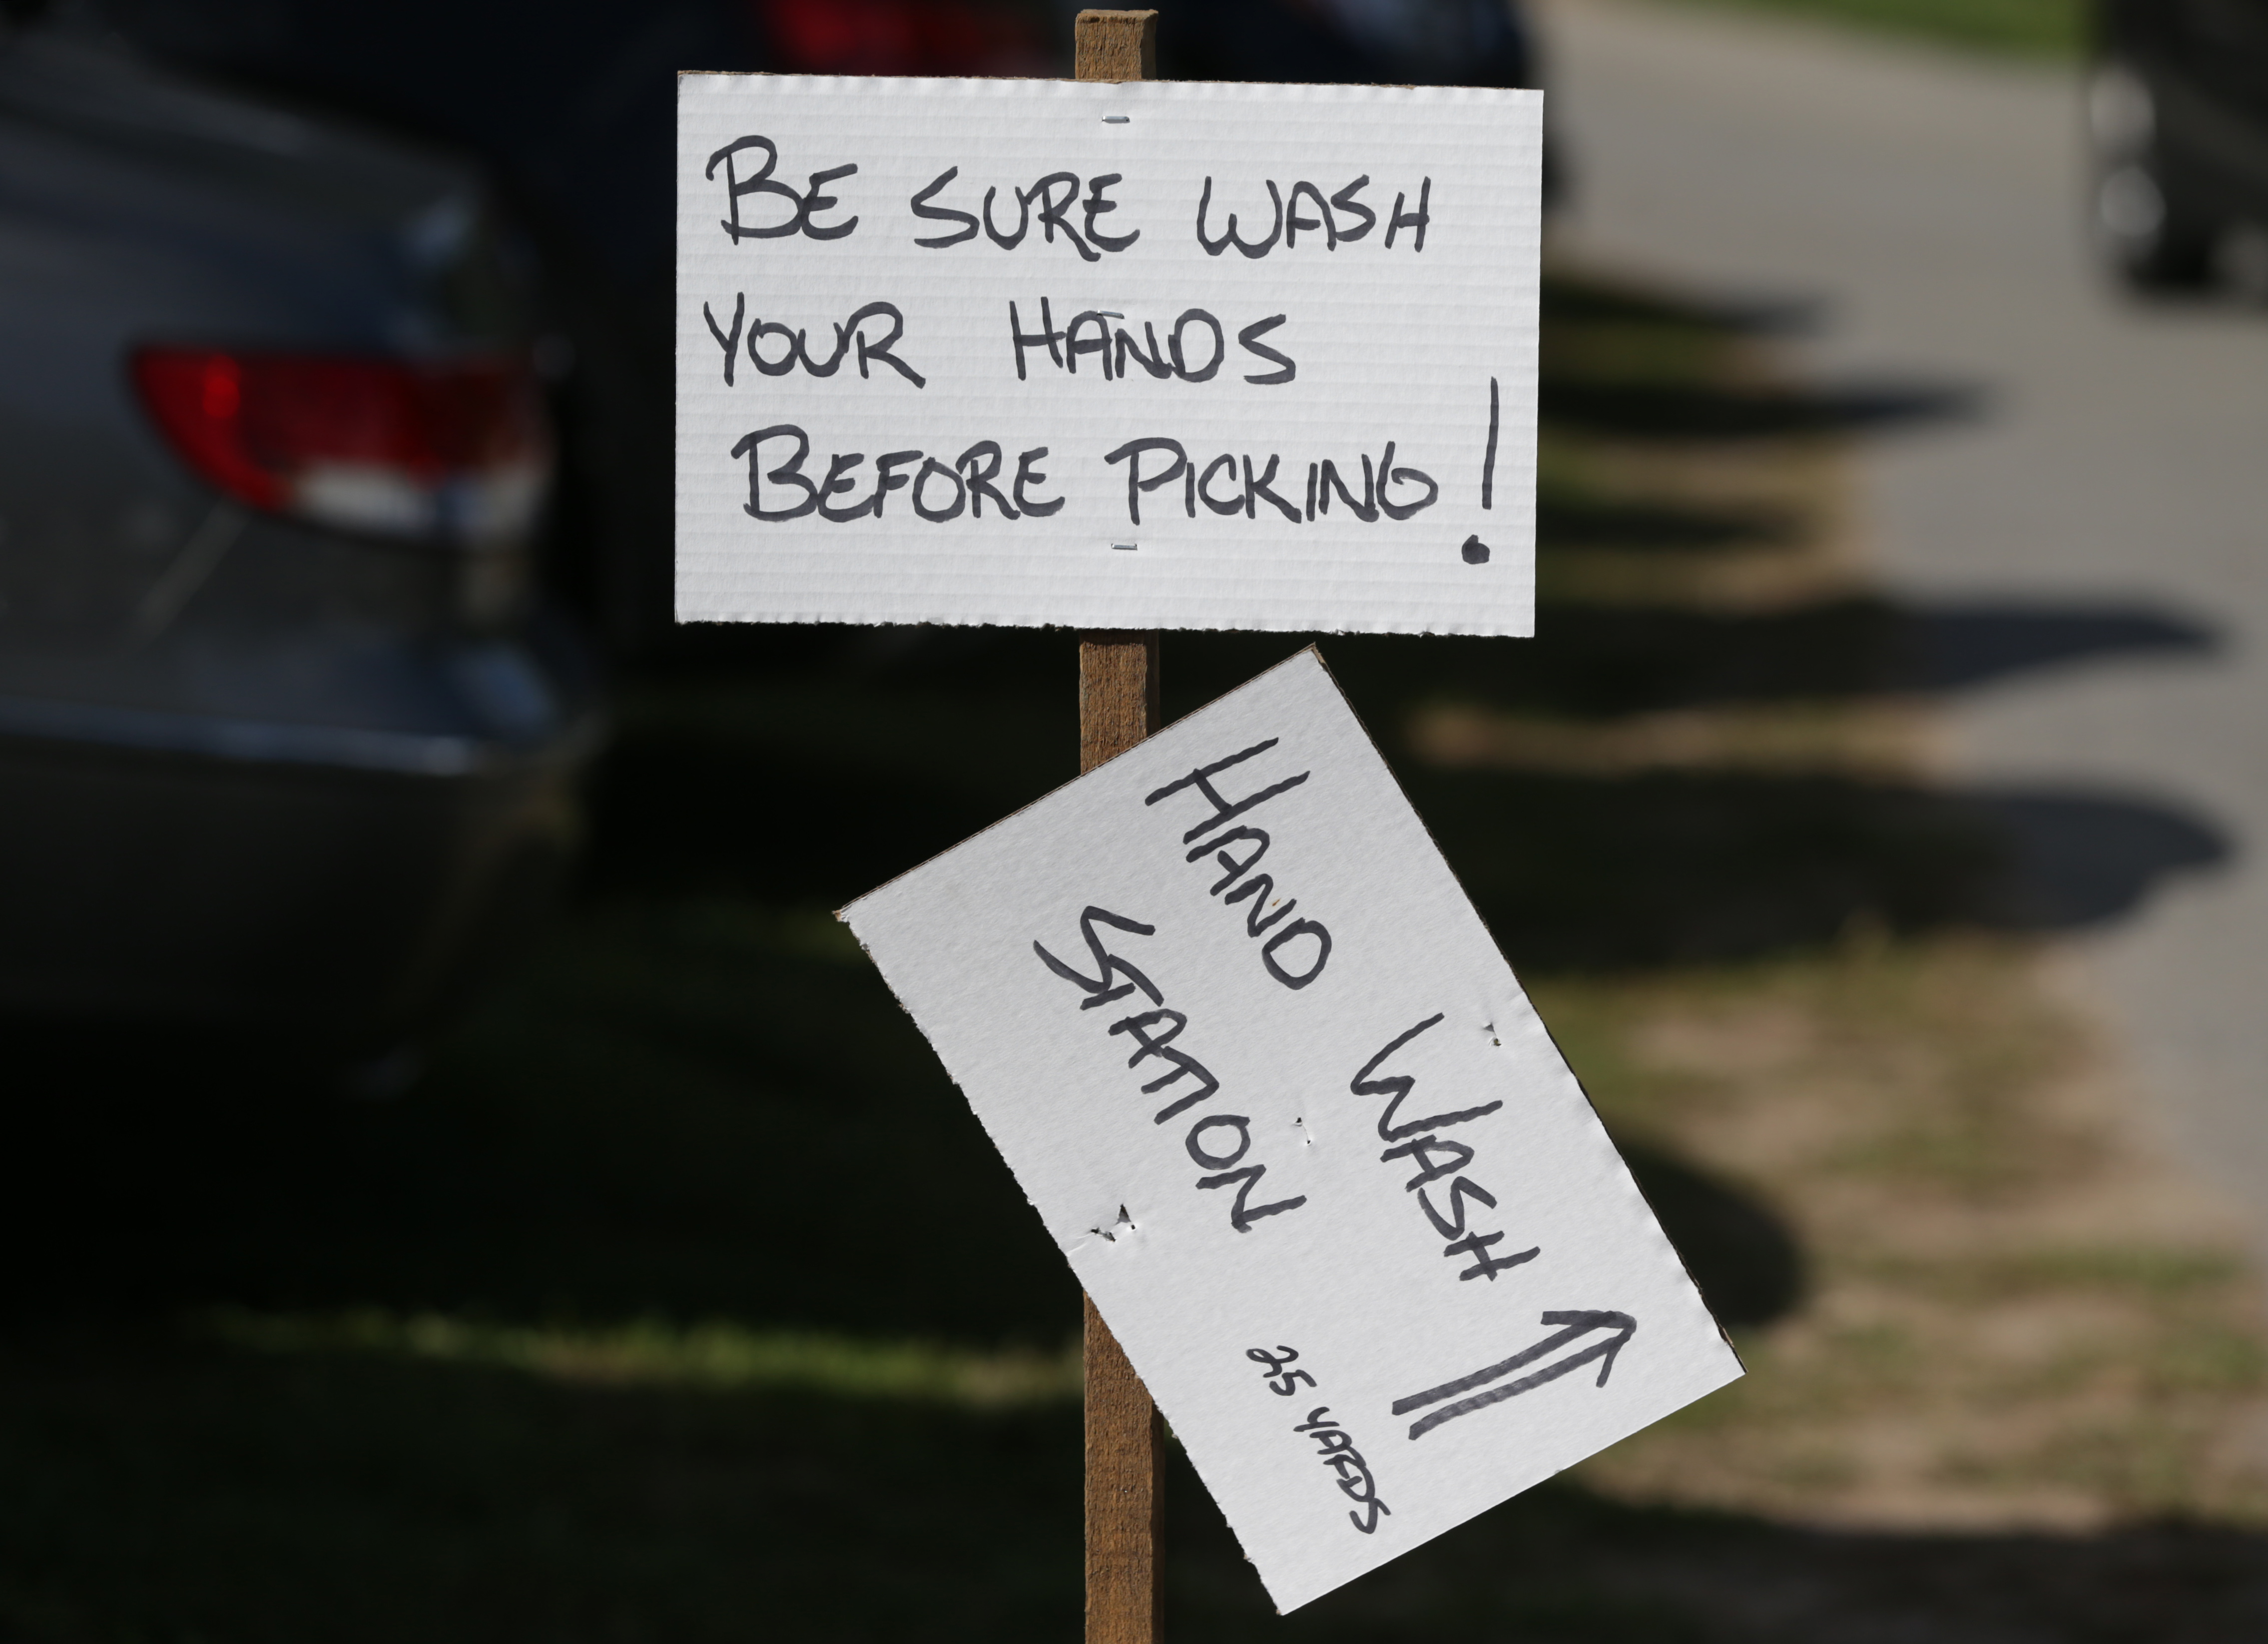 BE SURE WASH
YOUR HANDS
BEFORE PICKING!
HAND WASH
STATION
25 YARDS